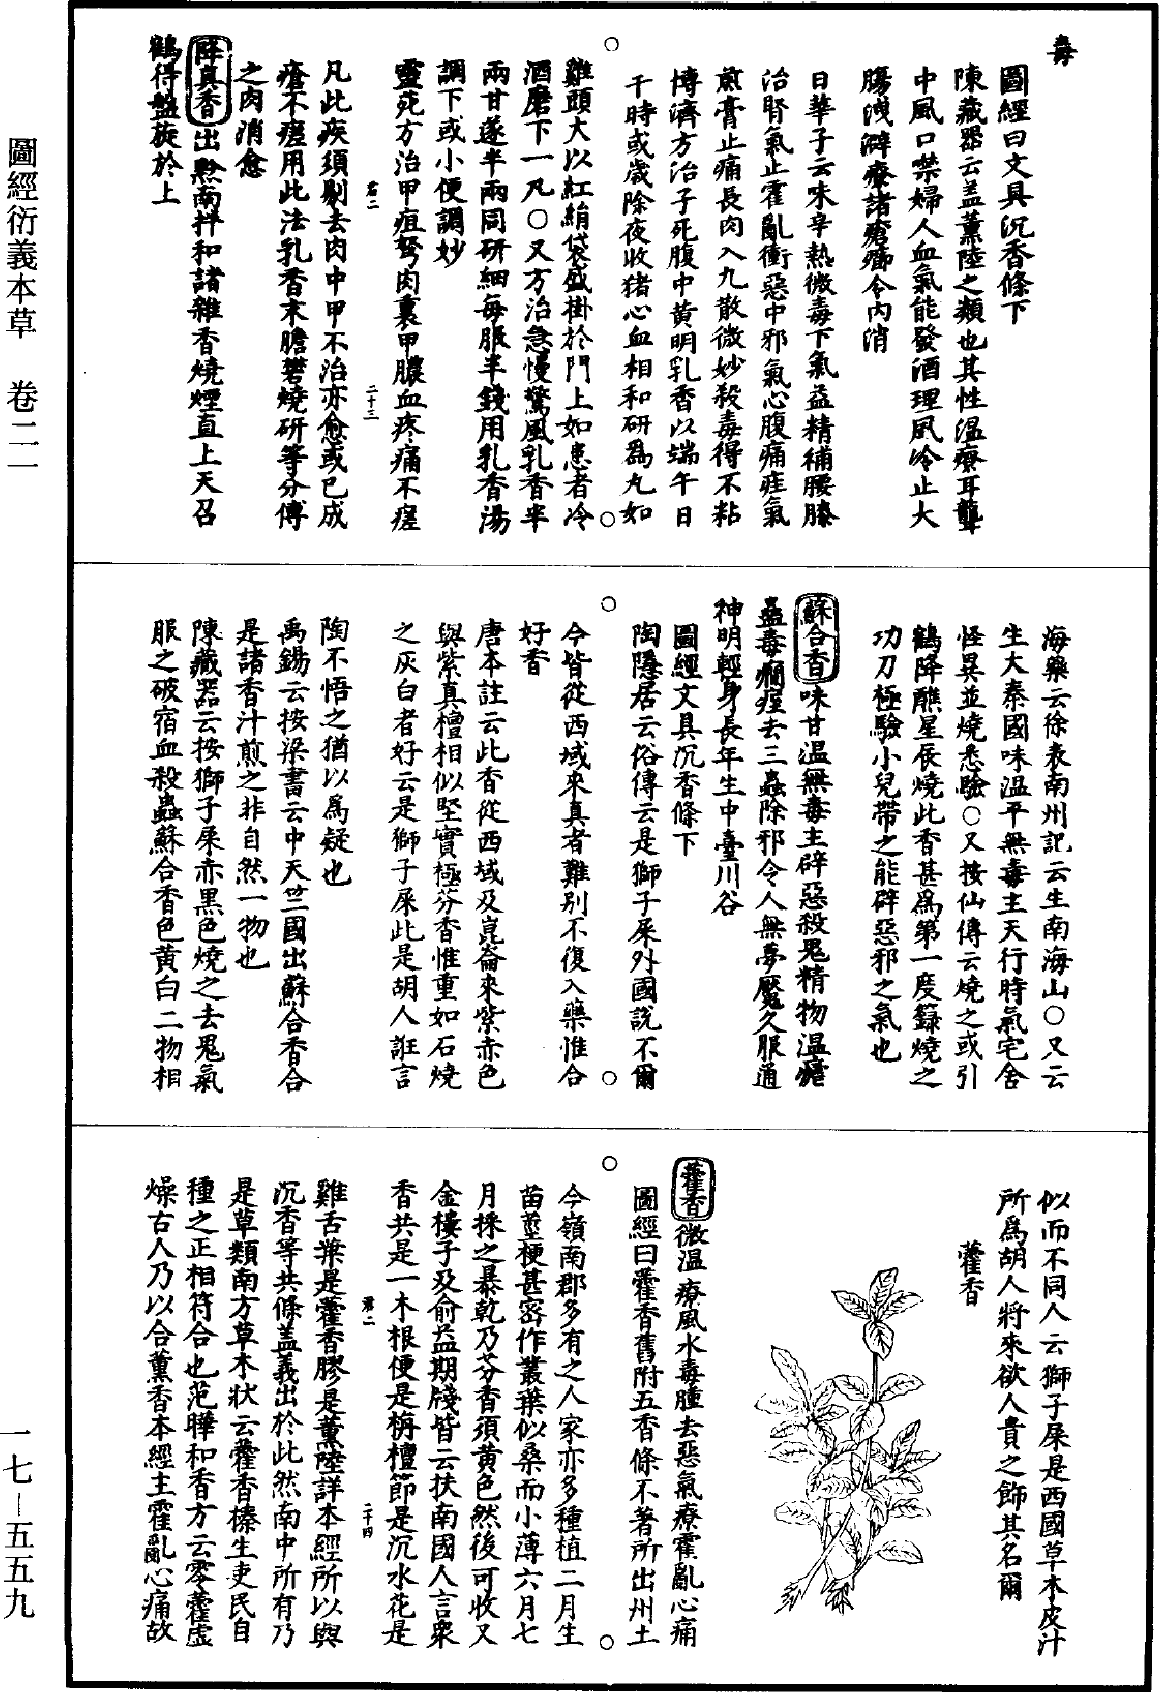 毒
圖經曰文具沉香條下
陳藏器云盖薰陸之類也其性溫療耳聾
中風口噤婦人血氣能發酒理風冷止大
腸洩澼療諸瘡癤令內消
日華子云味辛熱微毒下氣益精補腰膝
治腎氣止霍亂衝惡中邪氣心腹痛疰氣
煎膏止痛長肉入丸散微妙殺毒得不粘
博濟方治子死腹中黃明乳香以端午日
午時或歲除夜收猪心血相和研爲丸如
雞頭大以紅絹袋盛掛於門上如患者冷
酒磨下一丸○又方治急慢驚風乳香半
兩甘遂半兩同研細每服半錢用乳香湯
調下或小便調妙
靈苑方治甲疽弩肉裏甲膿血疼痛不瘥
凡此疾須剔去肉中甲不治亦愈或已成
瘡不瘥用此法乳香末膽礬燒研等分傅
之肉消愈
降真香出黔南拌和諸雜香燒煙直上天召
鶴得盤旋於上
海藥云徐表南州記云生南海山○又云
生大秦國味溫平無毒主天行時氣宅舍
怪異並燒悉驗○又按仙傳云燒之或引
鶴降醮星辰燒此香甚爲第一度籙燒之
功力極驗小兒帶之能辟惡邪之氣也
蘇合香味甘溫無毒主辟惡殺鬼精物溫瘧
蠱毒癇痓去三蟲除邪令人無夢魘久服通
神明輕身長年生中臺川谷
圖經文具沉香條下
陶隱居云俗傳云是獅子屎外國說不爾
今皆從西域來真者難別不復入藥惟合
好香
唐本註云此香從西域及崑崙來紫赤色
與紫真檀相似堅實極芬香惟重如石燒
之灰白者好云是獅子屎此是胡人誑言
陶不悟之猶以爲疑也
禹錫云按梁書云中天竺國出蘇合香合
是諸香汁煎之非自然一物也
陳藏器云按獅子屎赤黑色燒之去鬼氣
服之破宿血殺蟲蘇合香色黃白二物相
似而不同人云獅子屎是西國草木皮汁
所爲胡人將來欲人貴之飾其名爾
藿香
藿香微溫療風水毒腫去惡氣療霍亂心痛
圖經曰藿香舊附五香條不著所出州土
今嶺南郡多有之人家亦多種植二月生
苗莖梗甚密作叢葉似桑而小薄六月七
月採之暴乾乃芬香須黃色然後可收又
金樓子及俞益期牋皆云扶南國人言衆
香共是一木根便是栴檀節是沉水花是
雞舌葉是藿香膠是薰陸詳本經所以與
沉香等共條盖義出於此然南中所有乃
是草類南方草木狀云藿香榛生吏民自
種之正相符合也范曄和香方云零藿虛
燥古人乃以合薰香本經主霍亂心痛故
圖經衍義本草　卷二一
一七－五五九
君二
二十三
君二
二十四